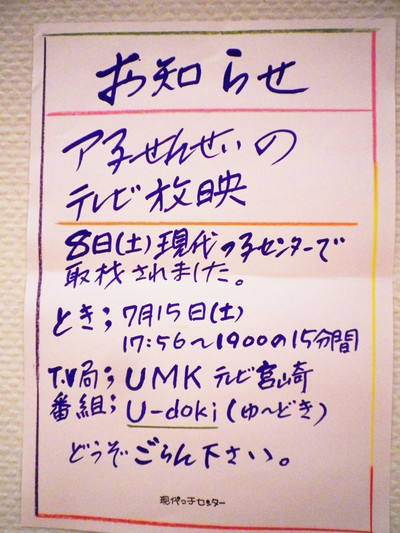 お知らせ
ア子せんせいの
テレビ放映
8日(土)現代っ子センターで
取材されました。
とき; 7月15日(土)
17:56～1900の15分間
T.V局; UMK テレビ宮崎
番組; U-doki (ゆ～どき)
どうぞごらん下さい。
現代っ子センター